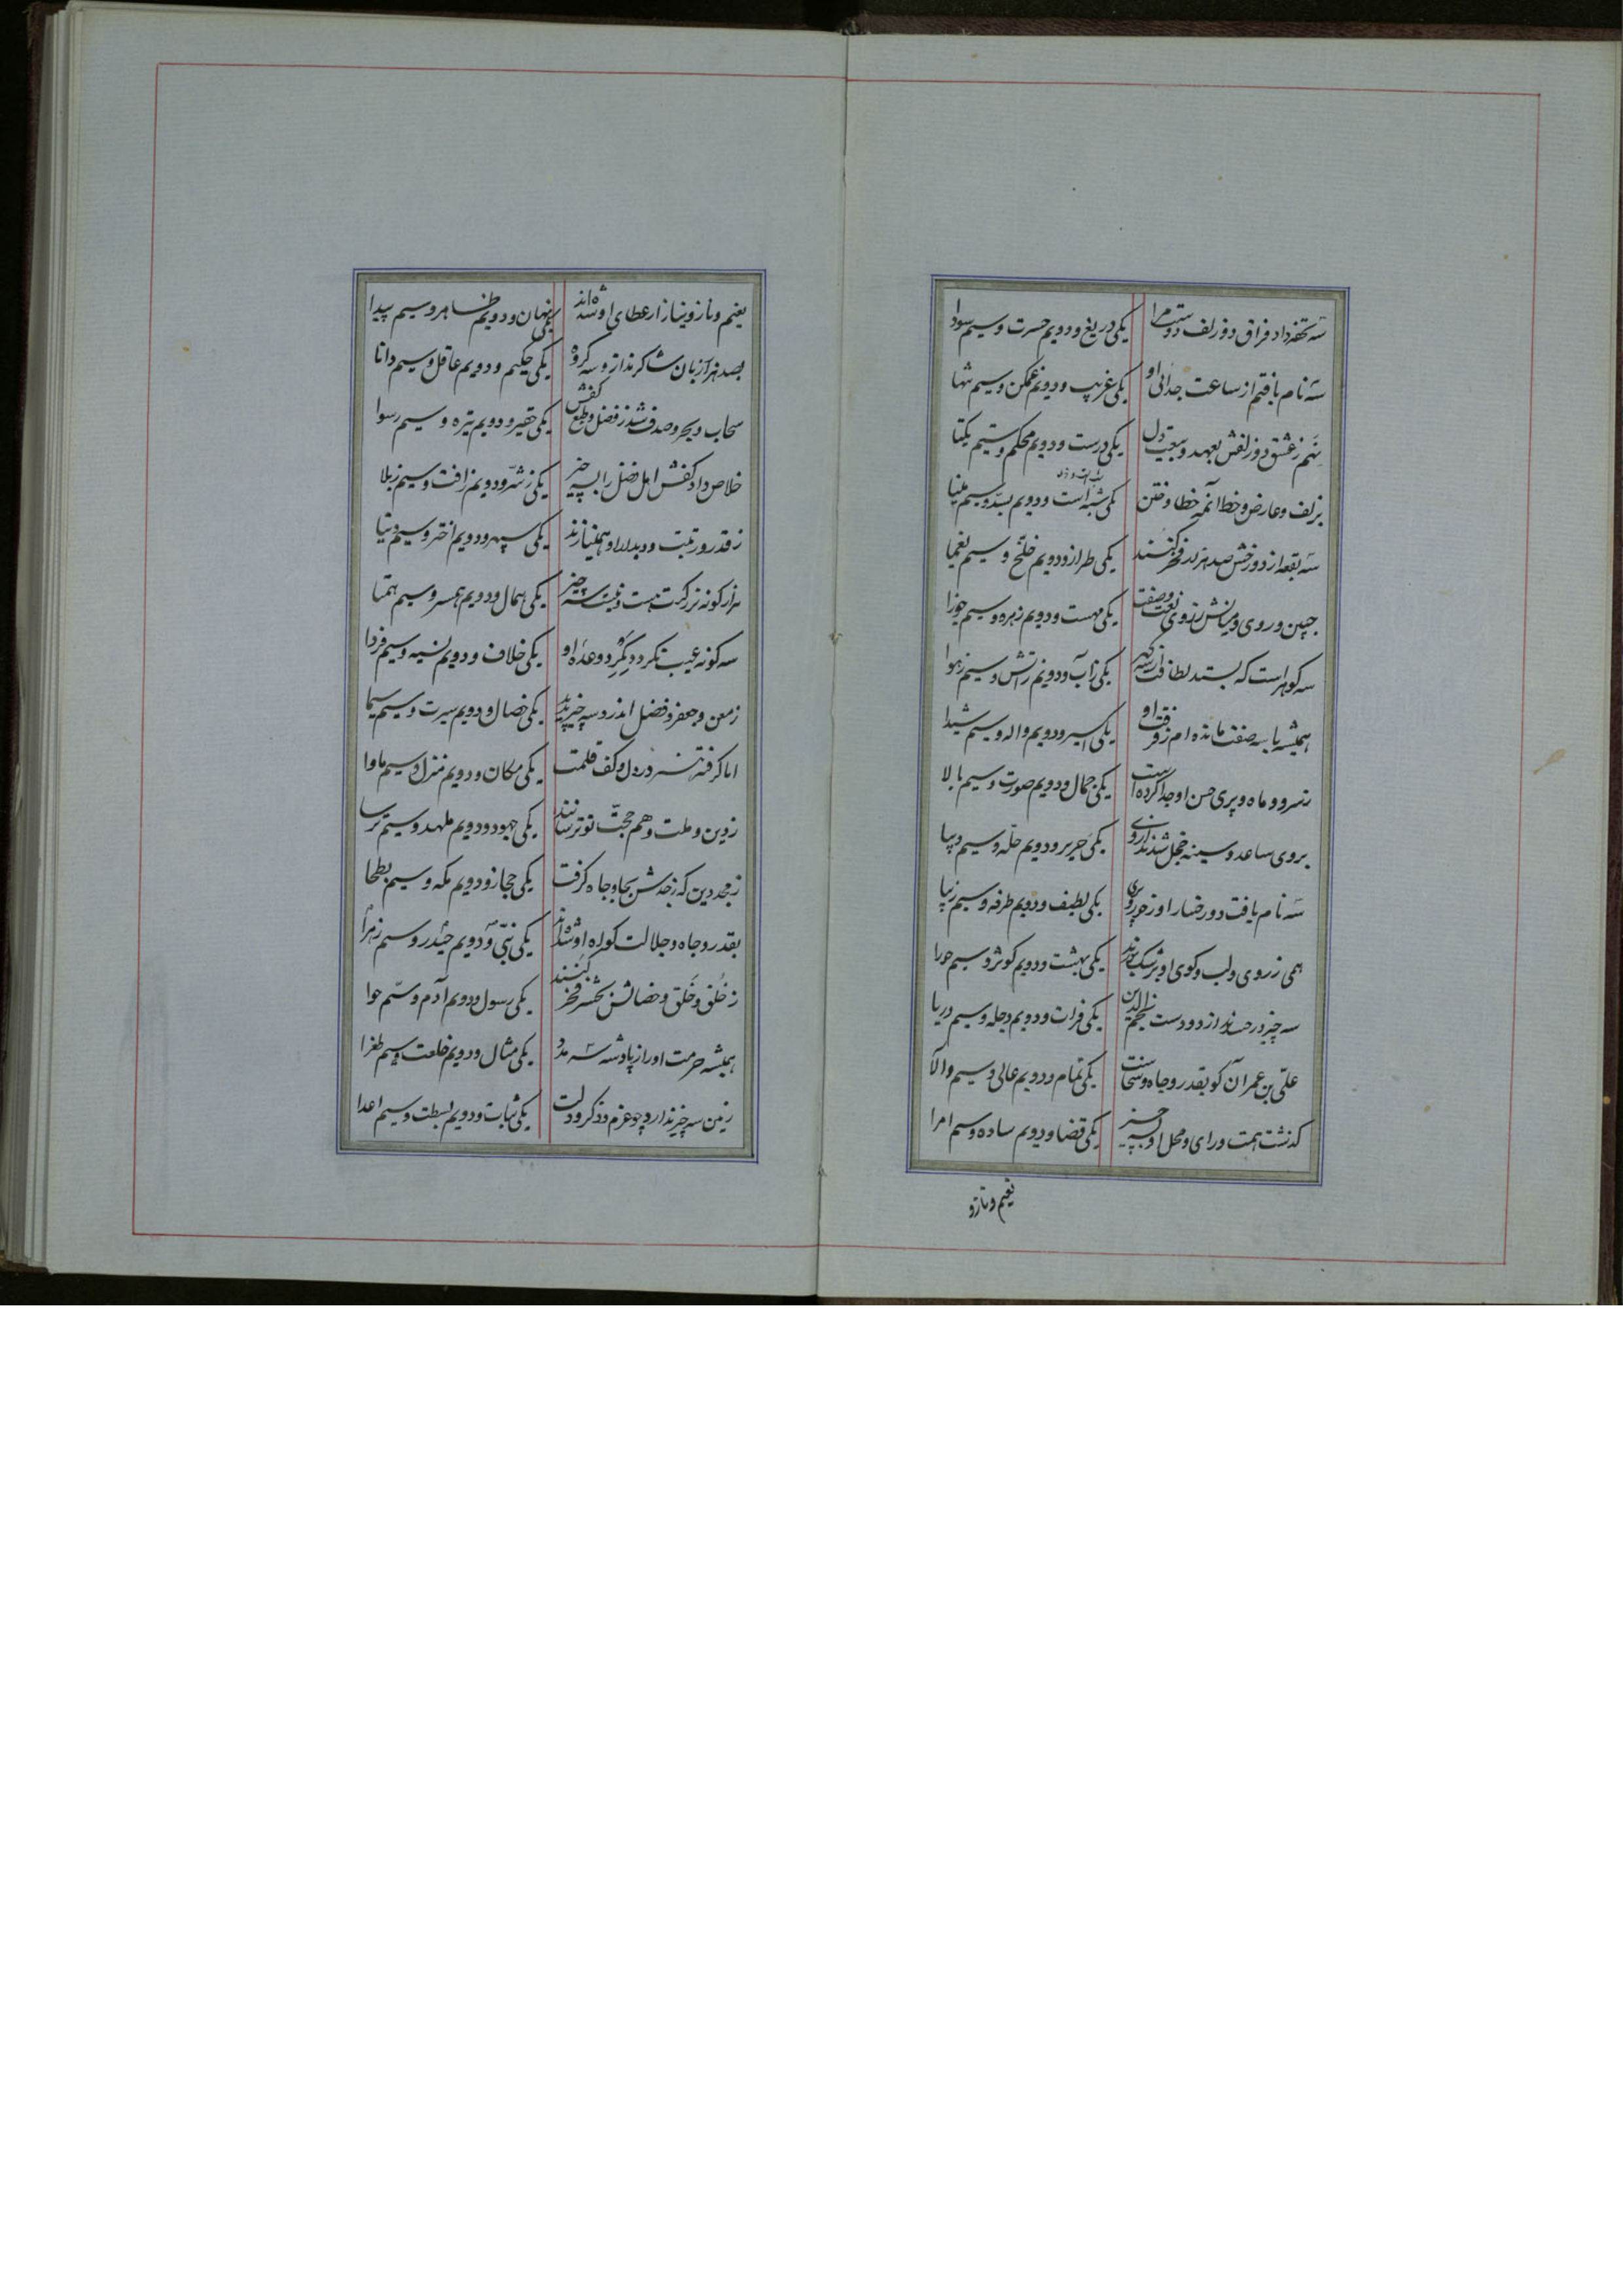 سه تحفه داد فراق دو زلف دوست مرا یکی دریغ و دویم حسرت و سیم سودا
سه نام یافتم از ساعت جدائی او یکی غریب و دویم غمکن و سیم تنها
منم ز عشق دو زلفش بعهد و بیعت دل یکی درست و دویم محکم و ستیم یکتا
بزلف و عارض و خط ختن یکی شبه است و دویم بسد و سیم مینا
سه بقعه از دو رخش صد هزار فخر کنند یکی طراز و دویم خلخ و سیم یغما
جبین و روی و میانش ز روی نعت و صفت یکی مهست و دویم زهره و سیم جوزا
سه کوهر است که بستد لطافت از سه کهر یکی ز آب و دویم ز آتش و سیم ز هوا
همیشه با سه صفت مانده ام ز فرقت او یکی اسیر و دویم واله و سیم شیدا
ز سرو و ماه و پری حسن او جدا کرده است یکی جمال و دویم صورت و سیم بالا
بروی ساعد و سینه خجل شدند از وی یکی حریر و دویم حله و سیم دیبا
سه نام یافت دو رخسار او ز یکی لطیف و دویم طرفه و سیم زیبا
همی ز روی و لب و کوی او برشک بوند یکی بهشت و دویم کوثر و سیم حورا
سه چیز در حسدند از دو دست نجم الدین یکی فرات و دویم دجله و سیم دریا
علی بن عمر آن کو بقدر و جاه و سخاست یکی تمام و دویم عالی و سیم والا
کذشت همت و رای و محل او بسه چیز یکی قضا و دویم ساده و سیم امرا
نعیم و ناز و
نعیم و ناز و نیاز از عطای او شده اند یکی نهان و دویم ظاهر و سیم پیدا
بصد هزار زبان شاکرند ازو سه کروه یکی حکیم و دویم عاقل و سیم دانا
سحاب و بحر و صدف شد ز فضل و طبع کفش یکی حقیر و دویم تیره و سیم رسوا
خلاص داد کفش اهل فضل را بسه چیز یکی ز شر و دویم ز آفت و سیم ز بلا
ز قدر و رتبت و دیدار او همینازند یکی سپهر و دویم اختر و سیم دنیا
هزار کونه بزرکیت هست و نیست سه چیز یکی همال و دویم همسر و سیم همتا
سه کونه عیب نکردد بکرد وعده او یکی خلاف و دویم نسیه و سیم فردا
ز معن و جعفر و فضل اندرو سه چیز یکی خصال و دویم سیرت و سیم سیما
ایا کرفته هنر در دل و کف و قلمت یکی مکان و دویم منزل و سیم ماوا
ز دین و ملت و هم حجت تو ترسانند یکی جهود و دویم ملهد و سیم ترسا
ز مجد دین که ز جدش بجا و جاه کرفت یکی حجاز و دویم مکه و سیم بطحا
بقدر و جاه و جلالت کواه او شده اند یکی نبی و دویم حیدر و سیم زهرا
ز خلق و خلق و خصالش بحشر فخر کنند یکی رسول و دویم آدم و سیم حوا
همیشه حرمت او را ز پادشه سه مدد یکی مثال و دویم خلعت و سیم طغرا
زمین سه چیز ندارد چو عزم و ذکر و دلت یکی ثبات و دویم بسطت و سیم اعدا